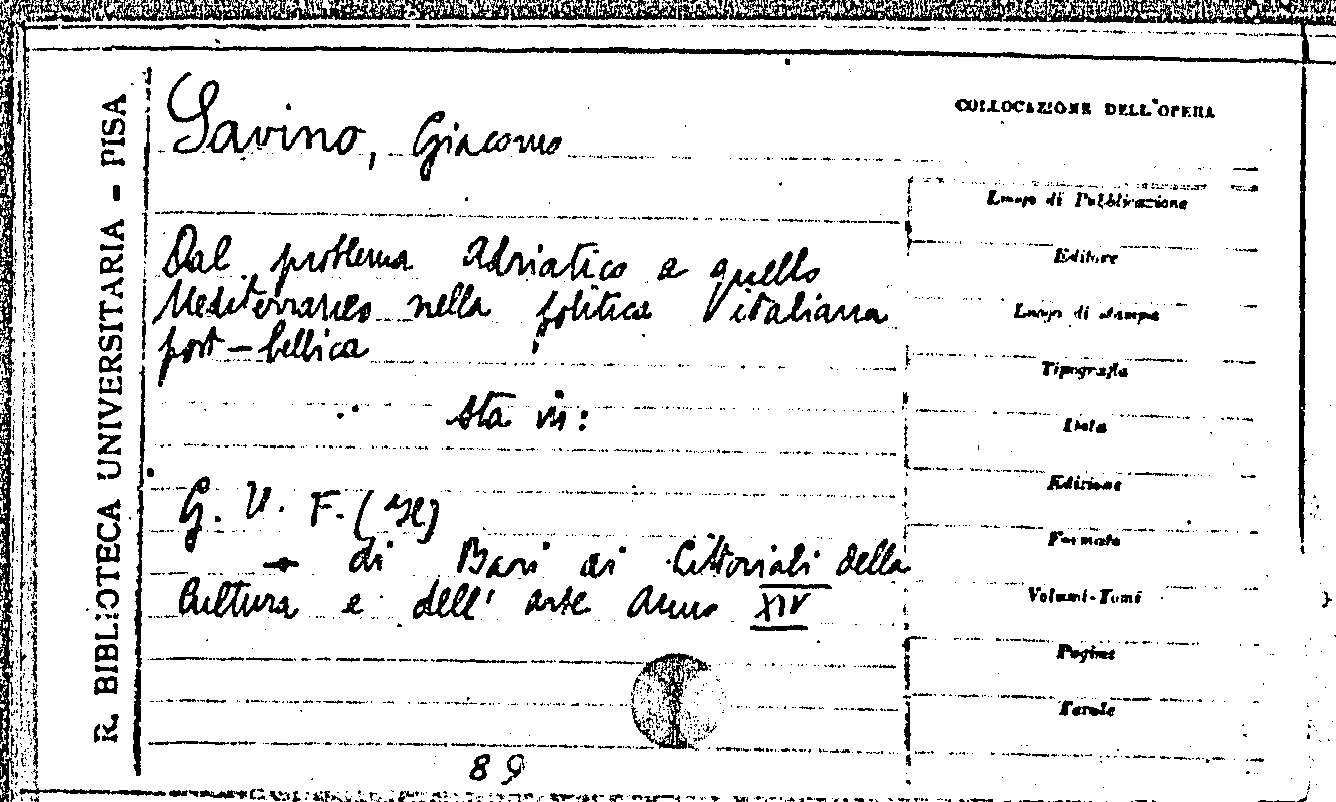 R. BIBLIOTECA UNIVERSITARIA - PISA
Savino, Giacomo
Dal problema Adriatico a quello
Mediterraneo nella politica italiana
post-bellica
sta in:
G. U. F. (Il)
— di Bari ai Littoriali della
Cultura e dell' arte Anno XIV
89
COLLOCAZIONE DELL'OPERA
Luogo di Pubblicazione
Editore
Luogo di stampa
Tipografia
Data
Edizione
Formato
Volumi-Tomi
Pagine
Tavole